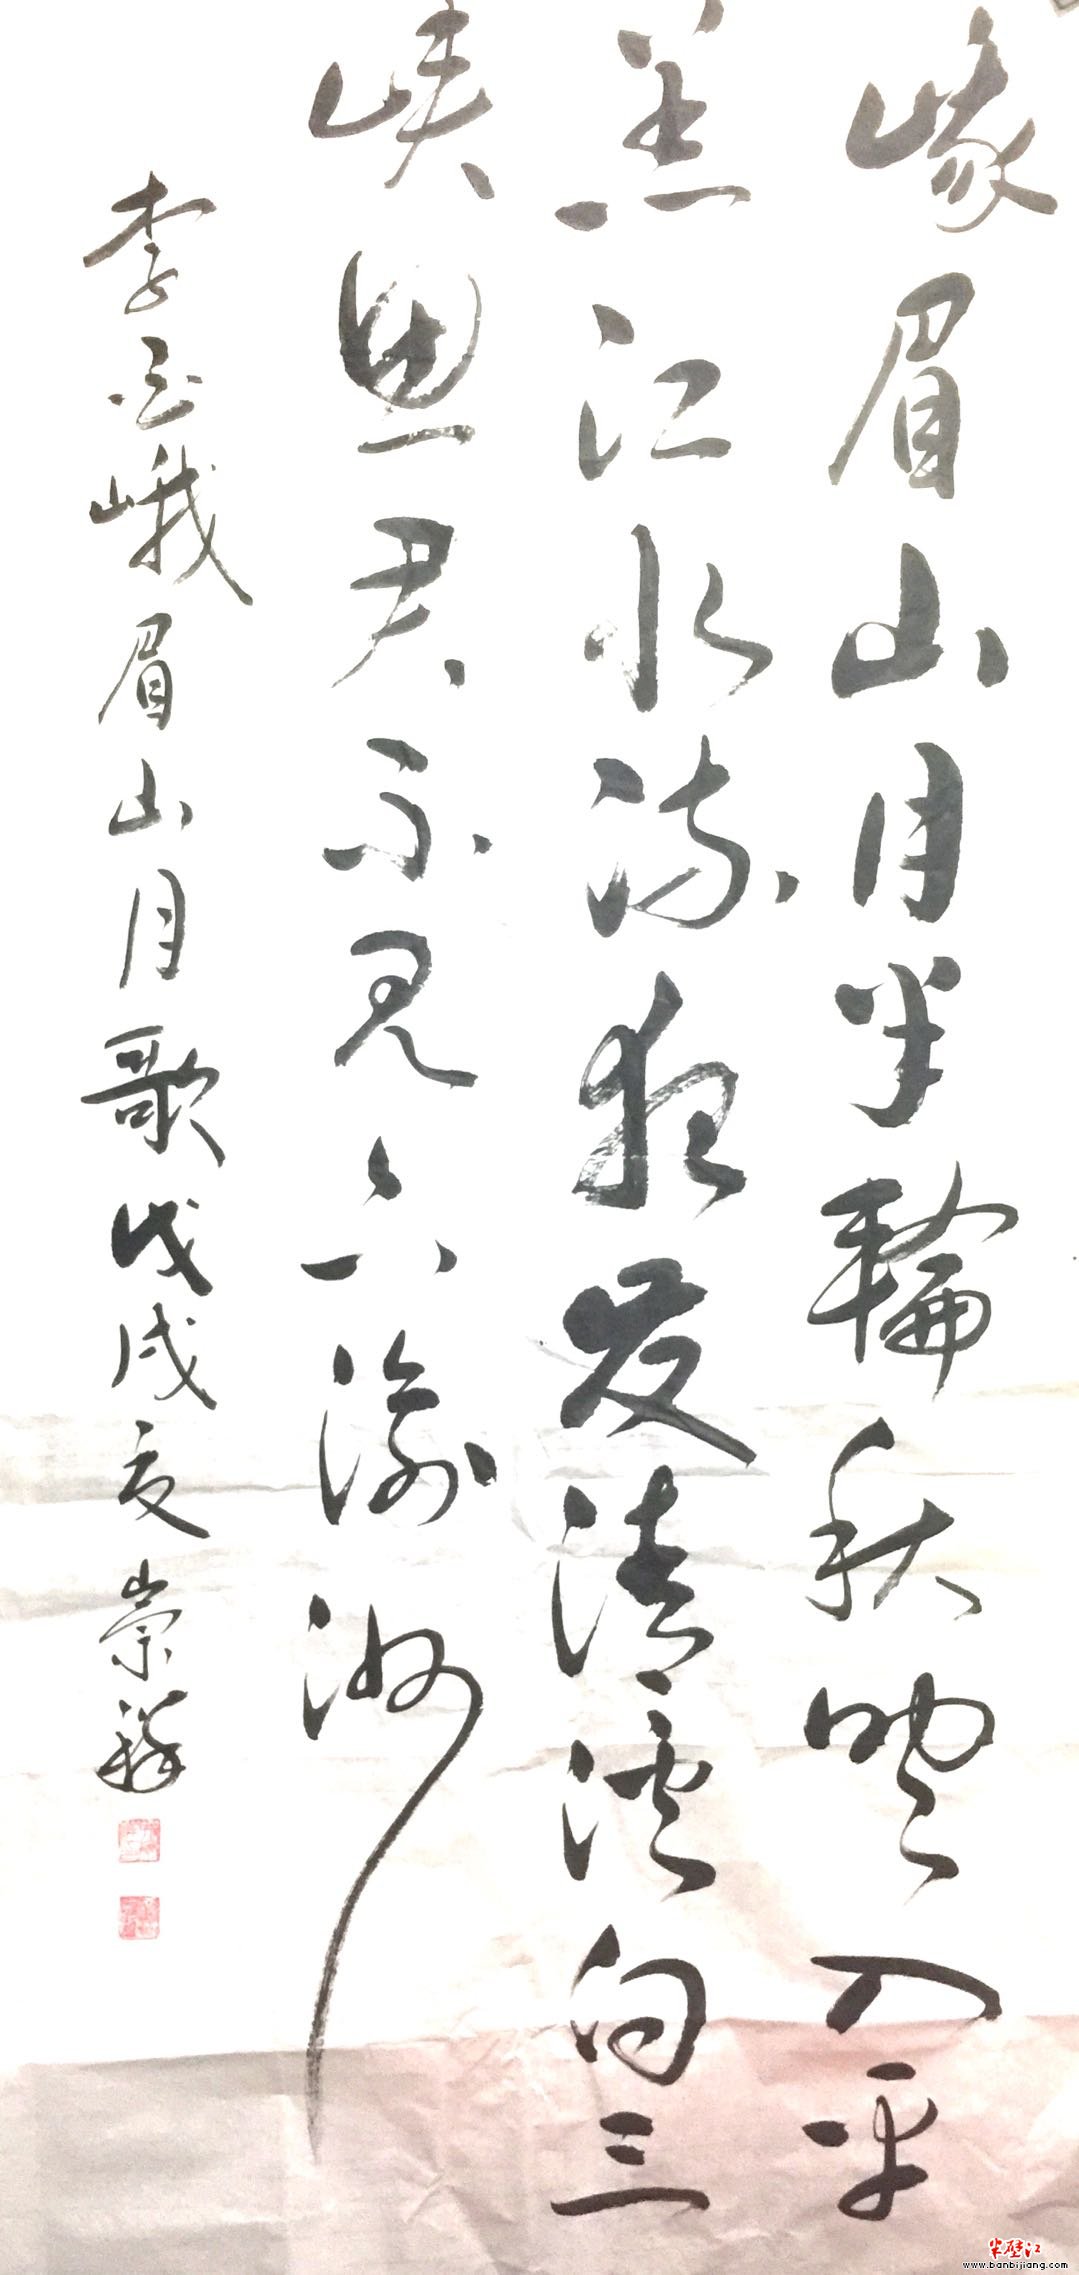 峨眉山月半輪秋映入平
羌江水流夜发清溪向三
峡思君不见下渝洲
李白峨眉山月歌戊戌夏崇祥
半壁江
www.banbijiang.com